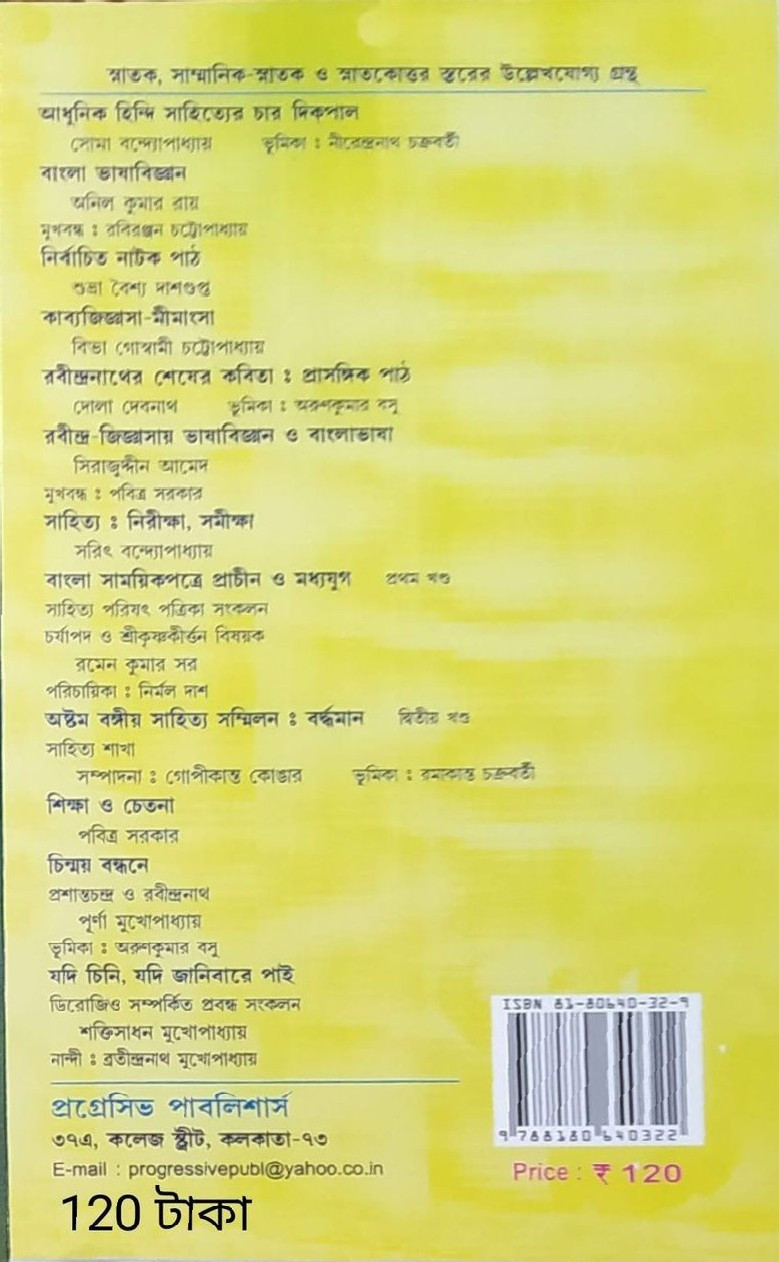 স্নাতক, সাম্মানিক-স্নাতক ও স্নাতকোত্তর স্তরের উল্লেখযোগ্য গ্রন্থ
আধুনিক হিন্দি সাহিত্যের চার দিকপাল
সোমা বন্দ্যোপাধ্যায় ভূমিকা : নীরেন্দ্রনাথ চক্রবর্তী
বাংলা ভাষাবিজ্ঞান
অনিল কুমার রায়
মুখবন্ধ : রবিরঞ্জন চট্টোপাধ্যায়
নির্বাচিত নাটক পাঠ
শুভ্রা বৈশ্য দাশগুপ্ত
কাব্যজিজ্ঞাসা-মীমাংসা
বিভা গোস্বামী চট্টোপাধ্যায়
রবীন্দ্রনাথের শেষের কবিতা : প্রাসঙ্গিক পাঠ
দোলা দেবনাথ ভূমিকা : অরুণকুমার বসু
রবীন্দ্র-জিজ্ঞাসায় ভাষাবিজ্ঞান ও বাংলাভাষা
সিরাজুদ্দীন আমেদ
মুখবন্ধ : পবিত্র সরকার
সাহিত্য : নিরীক্ষা, সমীক্ষা
সরিৎ বন্দ্যোপাধ্যায়
বাংলা সাময়িকপত্রে প্রাচীন ও মধ্যযুগ প্রথম খণ্ড
সাহিত্য পরিষৎ পত্রিকা সংকলন
চর্যাপদ ও শ্রীকৃষ্ণকীর্ত্তন বিষয়ক
রমেন কুমার সর
পরিচায়িকা : নির্মল দাশ
অষ্টম বঙ্গীয় সাহিত্য সম্মিলন : বর্দ্ধমান দ্বিতীয় খণ্ড
সাহিত্য শাখা
সম্পাদনা : গোপীকান্ত কোঙার ভূমিকা : রমাকান্ত চক্রবর্তী
শিক্ষা ও চেতনা
পবিত্র সরকার
চিন্ময় বন্ধনে
প্রশান্তচন্দ্র ও রবীন্দ্রনাথ
পূর্ণা মুখোপাধ্যায়
ভূমিকা : অরুণকুমার বসু
যদি চিনি, যদি জানিবারে পাই
ডিরোজিও সম্পর্কিত প্রবন্ধ সংকলন
শক্তিসাধন মুখোপাধ্যায়
নান্দী : ব্রতীন্দ্রনাথ মুখোপাধ্যায়
ISBN 81-80640-32-9
9 788180 640322
প্রগ্রেসিভ পাবলিশার্স
৩৭এ, কলেজ স্ট্রীট, কলকাতা-৭৩
E-mail : progressivepubl@yahoo.co.in
Price : ₹ 120
120 টাকা